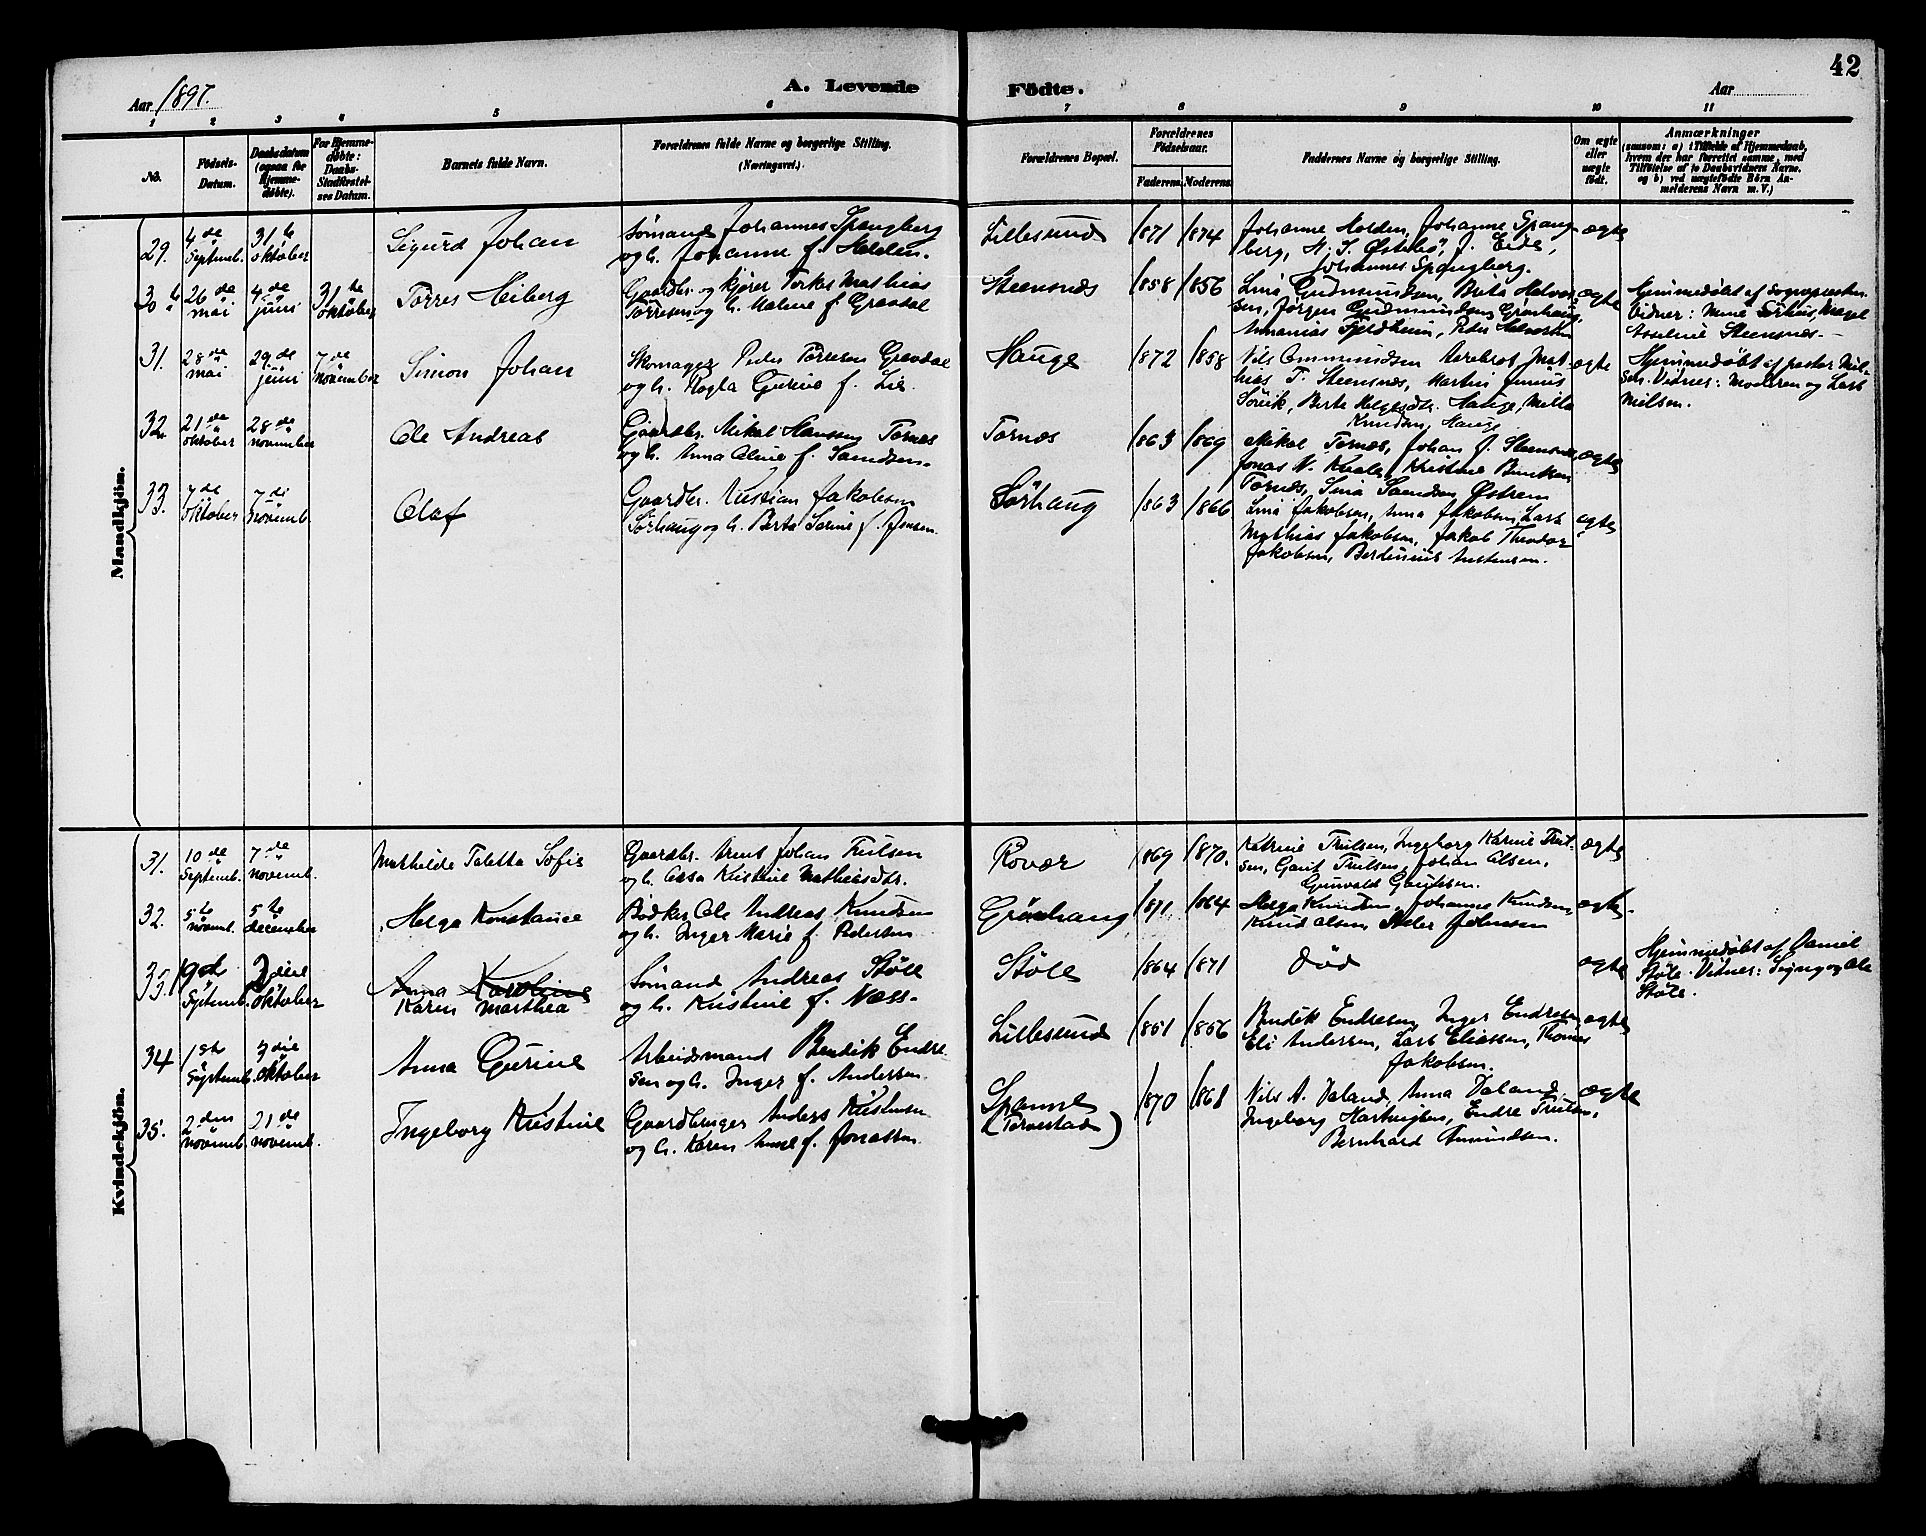 42
Aar 1897.
A. Levende Fødte.
Aar
1 2 3 4 5 6 7 8 9 10 11
No.
Fødsels-Datum.
Daabsdatum (ogsaa for Hjemmedøbte).
For Hjemmedøbte: Daabs-Stadfæstelses Datum.
Barnets fulde Navn.
Forældrenes fulde Navne og borgerlige Stilling.
(Næringsvei.)
Forældrenes Bopæl.
Forældrenes Fødselsaar.
Faderens. Moderens.
Faddernes Navne og borgerlige Stilling.
Om ægte eller uægte født.
Anmærkninger
(saasom: a) i Tilfælde af Hjemmedaab, hvem der har forrettet samme, med Tilføielse af to Daabsvidners Navne, og b) ved uægtefødte Børn Anmelderens Navn m. V.)
Mandkjøn.
29. 4de Septemb. 31te oktober Sigurd Johan
Sømand Johannes Spangberg
og h. Johanne f. Holden.
Lillesund 1871 1874
Johanne Holden, Johanne Spang-
berg, H. S. Østebö, J. Eide,
Johannes Spangberg.
ægte
30te 26de mai 4de juni 31te oktober Torres Heiberg
Gaardbr. og kjører Torkes Mathias
Torresen og h. Malene f. Gravdal
Steensnæs 1858 1856
Lina Gudmundsen, Berta Halvor-
sen, Jørgen Gudmundsen Grønhaug,
Ananias Fjeldheim, Peder Halvorsen
ægte
Hjemmedøbt af Sognepresten.
Vidner:
Steensnæs
31. 28de mai 29de juni 7de november Simon Johan
Skomager Peder Torresen Gravdal
og h. Gurine f. Lie.
Hauge 1872 1858
Nils Ommundsen Aarebrot, Mat-
hias T. Steensnæs, Martin
Sörvik, Berte Helgesdtr. Hauge, Milla
Knudsen Hauge
ægte
Hjemmedøbt af pastor Niel-
sen. Vidner: Moderen og Lars
Nielsen.
32. 21de oktober 28de november Ole Andreas
Gaardbr. Mikal Hansen Tornes
og h. Anna Oline f. Samdsen.
Tornæs 1863 1869
Mikal Tornæs, Johan J. Steensnæs,
Jonas N. Kvale, Kristine
Tornæs, Sina Samdsen Østrem
ægte
33. 7de oktober 7de novemb. Olaf
Gaardbr. Kristian Jakobsen
Sörhaug og h. Berta Serine f. Jensen.
Sörhaug 1863 1866
Lina Jakobsen, Anna Jakobsen, Lars
Mathias Jakobsen, Jakob Theodor
Jakobsen, Berdinius
ægte
Kvindekjøn.
31. 10de Septemb. 7de novemb. Mathilde Taletta Sofie
Gaardbr. Arent Johan Trulsen
og h. Kristine Mathiasdtr.
Rövær 1869 1870.
Katrine Trulsen, Ingeborg Karine Trul-
sen, Gaut Trulsen, Johan Olsen,
Grunvald Gautesen.
ægte
32. 5te novemb. 5te december Helga Konstance
Bødker Ole Andreas Knudsen
og h. Inger Marie f. Pedersen
Grönhaug 1871 1864
Helga Knudsen, Johanne Knudsen,
Knud Olsen, Johnsen
ægte.
33. 19de Septemb. 3die oktober Anna Karoline
Karen Marthea
Sømand Andreas Støle
og h. Kristine f. Næss.
Støle 1864 1871
død
ægte
Hjemmedøbt af Daniel
Støle. Vidner: Signy og Ole
Støle.
34 1ste Septemb. 3die oktober Anna Gurine
Arbeidsmand Bendik Endre-
sen og h. Inger f. Andersen.
Lillesund 1851 1856
Bendik Endresen, Inger Endresen,
Eli Andersen, Lars Eliassen, Thomas
Jakobsen.
ægte
35. 2den novemb. 21de novemb. Ingeborg Kristine
Gaardbruger Anders Kristensen
og h. Karen Anne f. Jonassen.
Spanne
(Torvestad)
1870 1868
Nils A. Valand, Anna Valand,
Ingeborg Hartvigsen, Endre Trulsen,
Bernhard Amundsen.
ægte